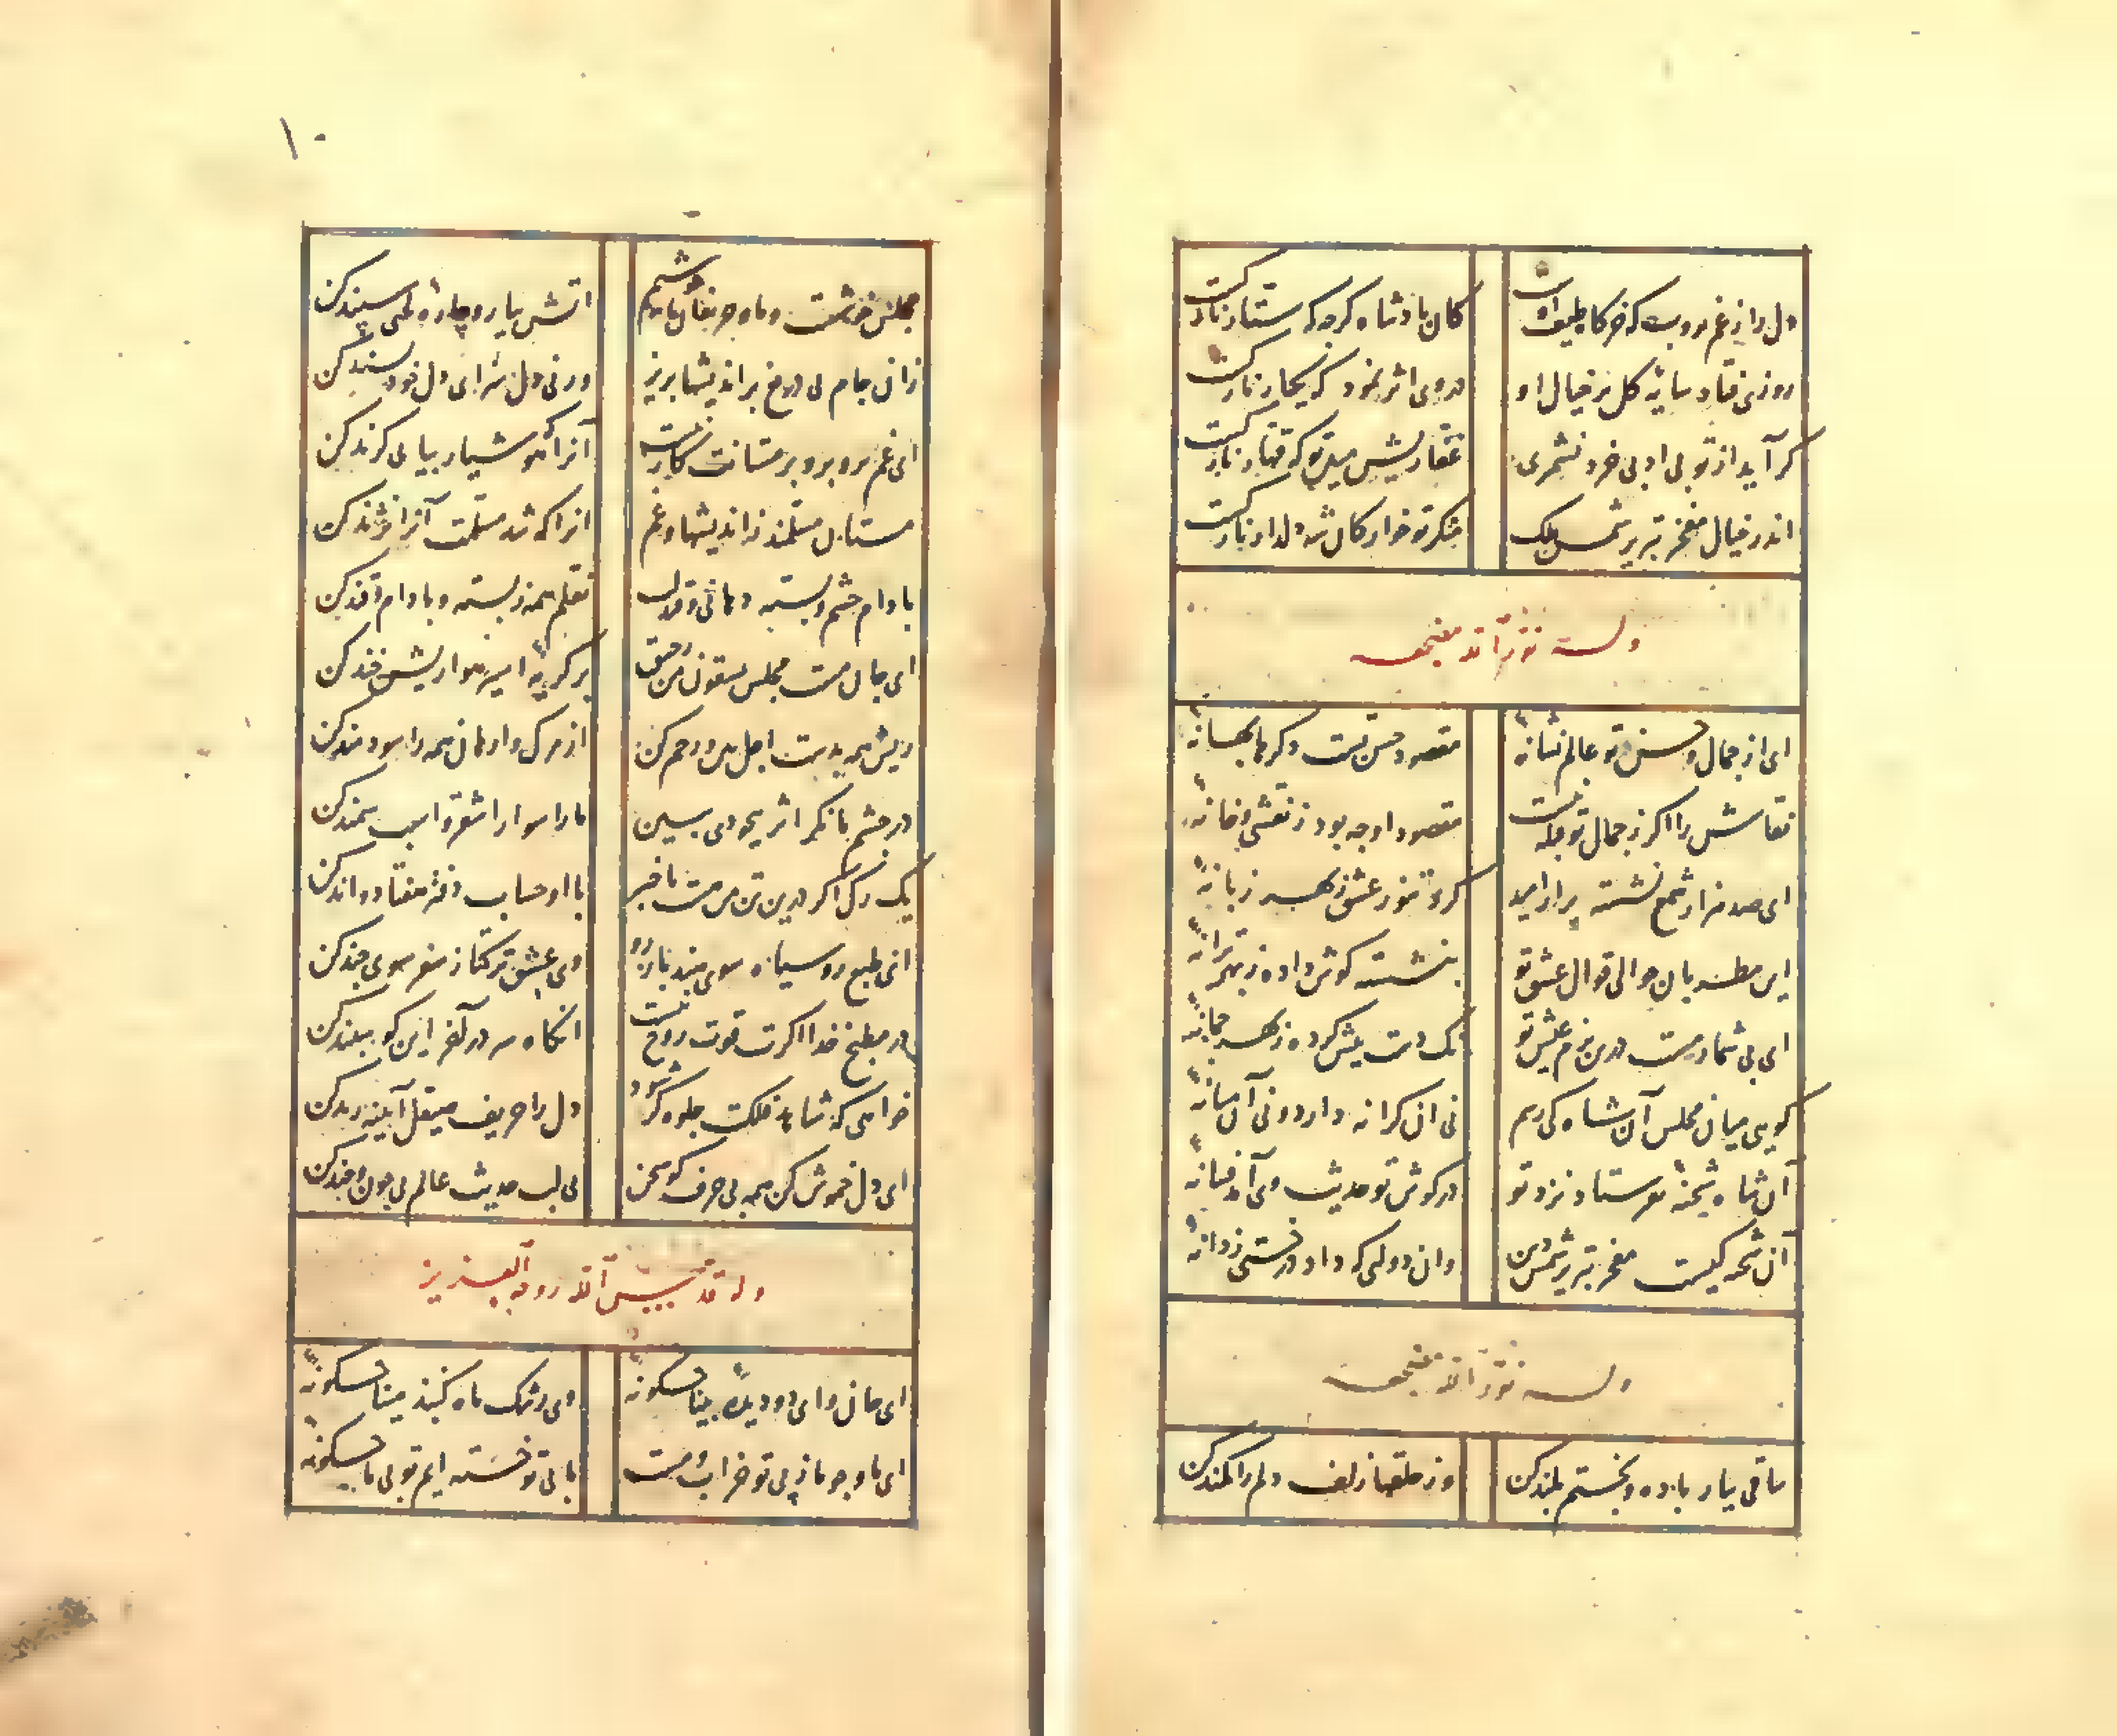 دل را ز غم بروب که خرگاه لطیف است
کان پادشاه گرچه که ستار نازکست
روزی فتاد سایهٔ گل بر خیال او
در وی اثر نمود که یکبار نازکست
کر آید از تو بی ادبی خرد نشمری
اندر خیال مفخر تبریز شمس
منکر تو خوار کان شه دلدار نازکست
وله نور الله مضجعه
ای از جمال و حسن تو عالم نشانهٔ
مقصود حسن تست و دکرها بهانهٔ
نقاش را اکر ز جمال تو قبله نیست
مقصود او چه بود ز نقشی و خانهٔ
ای صد هزار شمع نشسته برار امید
کرد تنور عشق ز بهر زبانهٔ
این مطربان حوالی قوال عشق تو
بنشسته کوش داده ز بهر ترانهٔ
ای بی شمار مست درین بزم عیش تو
یک دست پیش کرده ز بهر چمانهٔ
کویی میان مجلس آن شاه کی رسم
نی آن کرانه دارد و نی آن میانهٔ
آن شاه شحنهٔ بفرستاد نزد تو
در کوش تو حدیث وی آمد فسانهٔ
آن شحنه کیست مفخر تبریز شمس دین
وان دولتی که داد درختی ز دانهٔ
وله نور الله مضجعه
ساقی بیار باده و بختم بلند کن
وز حلقهای زلف دلم را کمند کن
۱۰
مجلس خوشست و ما و حریفان همه خوشیم
آتش بیار و چارهٔ مشتی سپند کن
زان جام بی دریغ بر اندیشها بریز
در بی دلی سزای دل خود پسند کن
ای غم برو برو بر مستانت کار نیست
آنرا که هوشیار بیابی کزند کن
مستان مسلمند ز اندیشها و غم
آنرا که شد مسلمت آنرا نژند کن
بادام چشم و پسته دهانی و قند لب
نقلم همه ز پسته و بادام و قند کن
ای جان مست مجلس یسقون من رحیق
بر کریهٔ اسیر هوا ریش خند کن
از مرک وارهان همه را سودمند کن
در چشم ما نکر اثر بیخودی ببین
ما را سوار اشقر و اسب سمند کن
یک رک اکر درین تن من هست با خبر
با او حساب دفتر هفتاد و اند کن
ای طبع روسیاه سوی هند باز رو
وی عشق ترکتاز سفر سوی جند کن
در مطبخ خدا اکرت قوت روح نیست
انکاه سر در آخر این کوسفند کن
خواهی که شاهد فلکت جلوه کر شود
دل را حریف صیقل آیینه رند کن
ای دل خموش کن همه بی حرف کو سخن
بی لب حدیث عالم بی چون و چند کن
وله قدس الله روحه العزیز
ای جان و ای دو دیدهٔ بینا چکونهٔ
وی رشک ماه کنبد مینا چکونهٔ
ای ما و چو ما ز پی تو خراب و مست
ما بی تو خسته ایم تو بی ما چکونهٔ